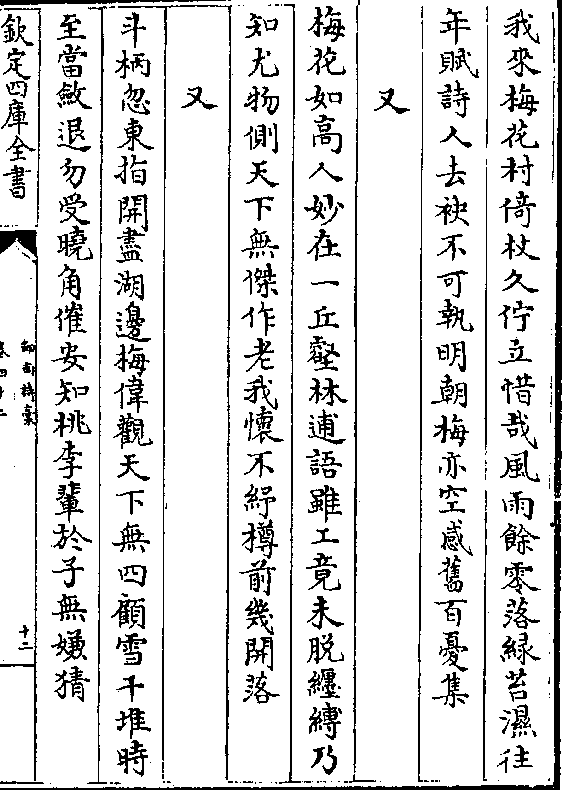 我來梅花村倚杖久佇立惜哉風雨餘零落緑苔濕往
年賦詩人去袂不可執明朝梅亦空感舊百憂集
又
梅花如高人妙在一丘壑林逋語雖工竟未脱纒縛乃
知尤物側天下無傑作老我懷不紓樽前幾開落
又
斗柄忽東指開盡湖邊梅偉觀天下無四顧雪千堆時
至當敏退勿受曉角催安知桃李輩於子無嫌猜
欽定四庫全書
卷四十二
十二